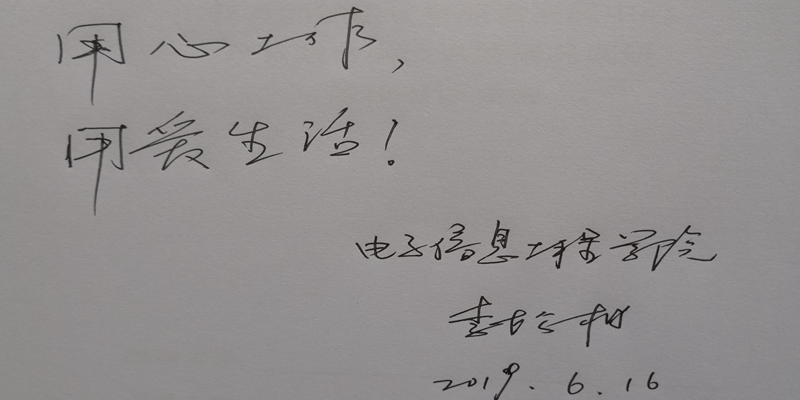 用心工作,
用爱生活!
电子信息工程学院
2019.6.16